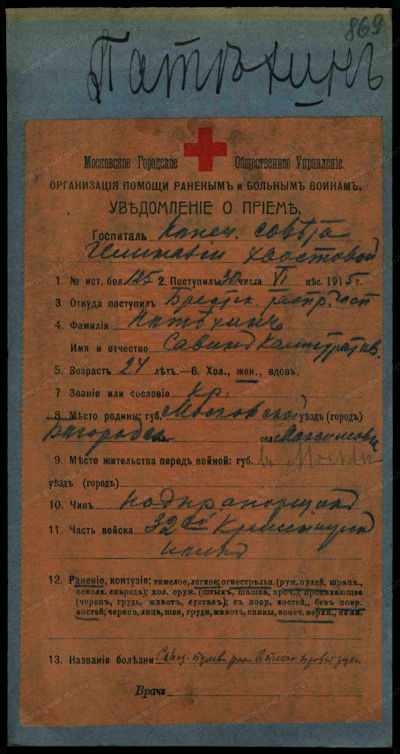 869
Патѣхинъ
Московское Городское Общественное Управленіе.
ОРГАНИЗАЦІЯ ПОМОЩИ РАНЕНЫМЪ и БОЛЬНЫМЪ ВОИНАМЪ.
УВѢДОМЛЕНІЕ О ПРІЕМѢ.
Госпиталь Попеч. совѣта
Гимназіи Хвостовой
1. № ист. бол. 125 2. Поступилъ 30 числа VI мѣс. 1915 г.
3. Откуда поступилъ Брестск. распр. пост
4. Фамилія Патѣхинъ
Имя и отчество Савинъ
5. Возрастъ 24 лѣтъ.—6. Хол., жен., вдов.
7. Званіе или сословіе кр.
8. Мѣсто родины: губ. Московской уѣздъ (городъ)
Богородск. сел. Максимово
9. Мѣсто жительства передъ войной: губ. въ Москвѣ
уѣздъ (городъ)
10. Чинъ подпрапорщикъ
11. Часть войска 32ой
полкъ
12. Раненіе, контузія; тяжелое, легкое; огнестрѣльн. (руж. пулей, шрапн.,
осколк. снаряда); хол. оруж. (штыкъ, шашка, проч.); проникающее
(черепъ, грудь, животъ, суставъ); съ повр. костей, безъ повр.
костей; черепа, лица, шеи, груди, живот, спины, конеч. верхн., нижн.
13. Названіе болѣзни
Врачъ